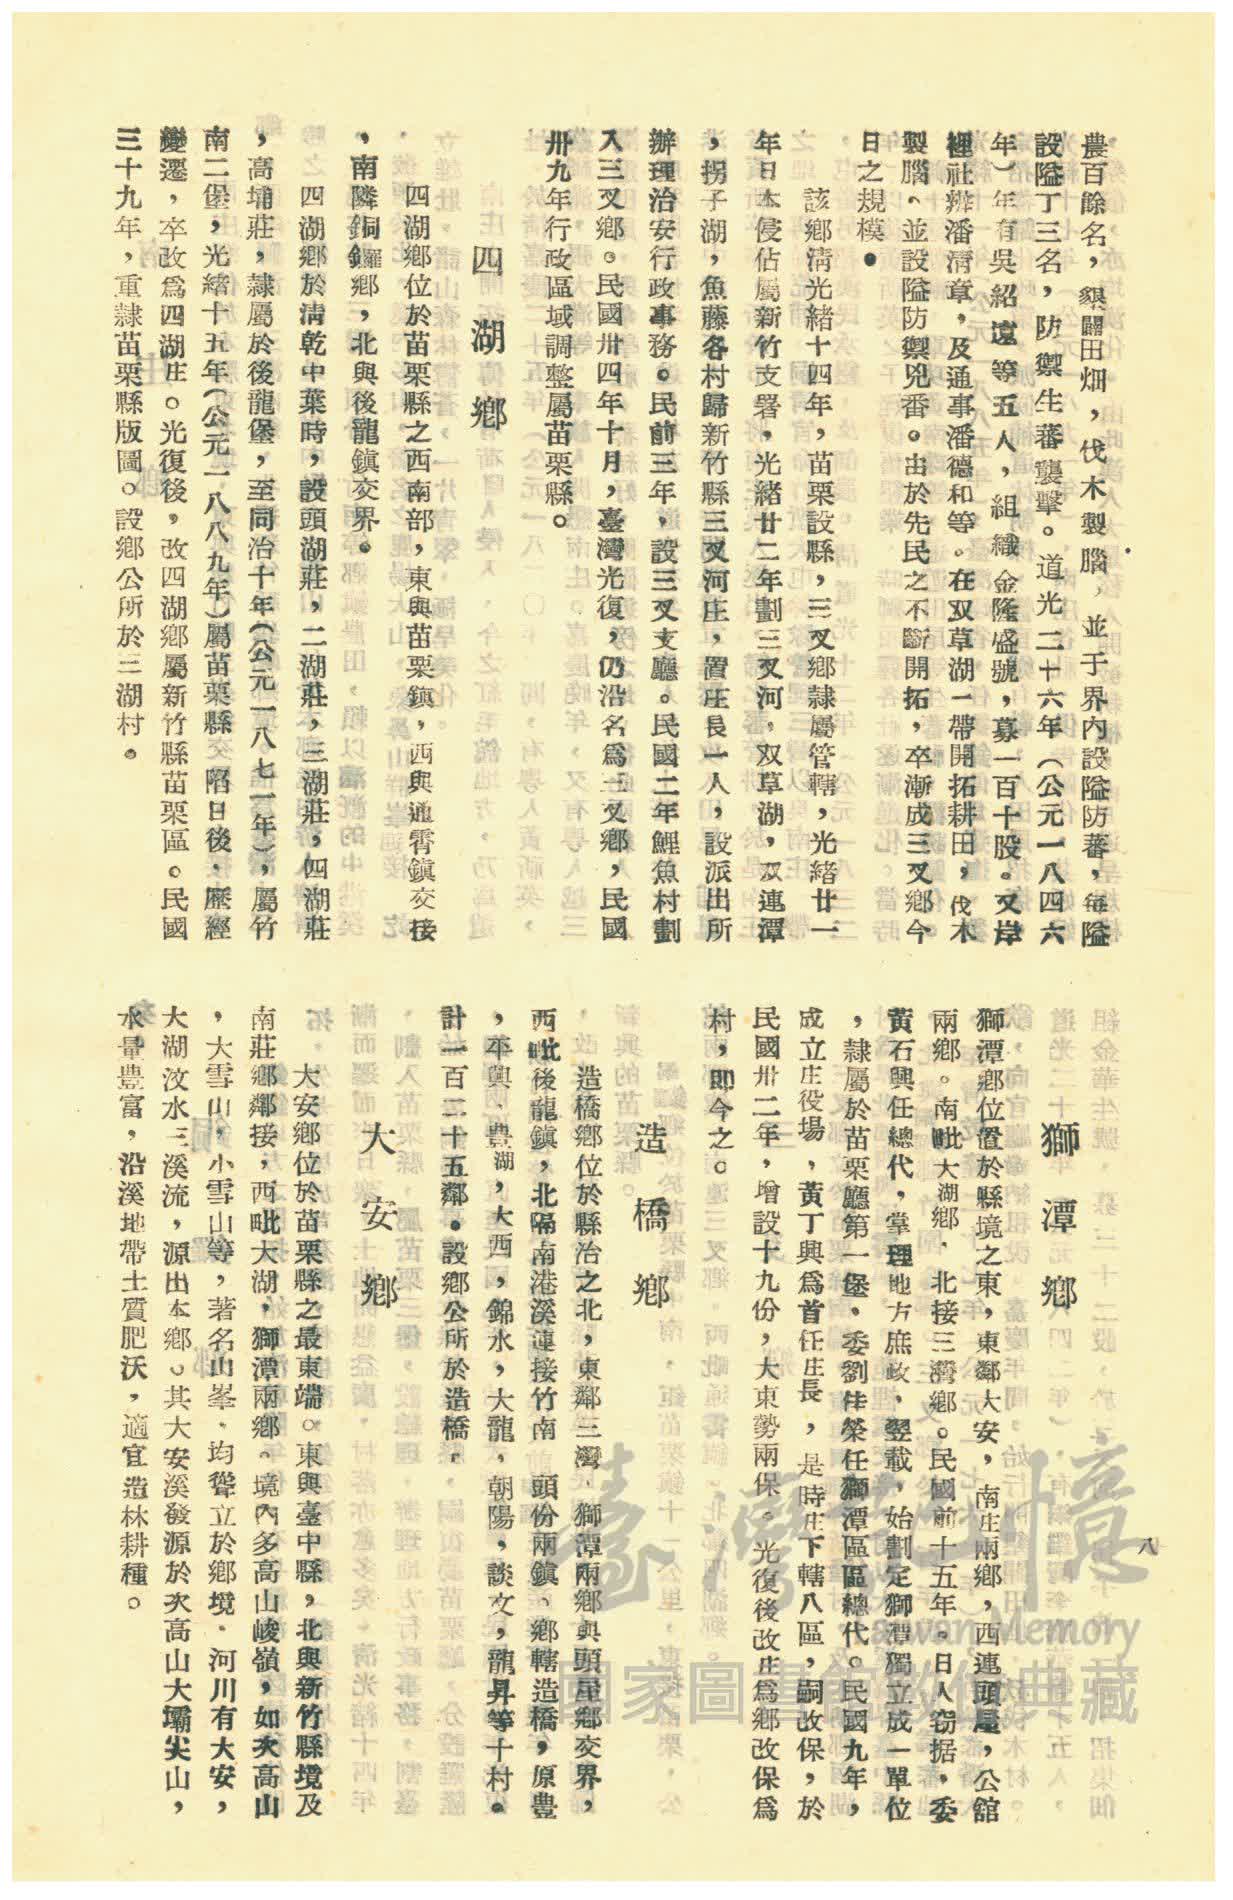 農百餘名，墾闢田畑，伐木製腦，並于界內設隘防蕃，每隘
設隘丁三名，防禦生蕃襲擊。道光二十六年（公元一八四六
年）年有吳紹遠等五人，組織金隆盛號，募一百十股。又岸
裡社辦潘清章，及通事潘德和等。在双草湖一帶開拓耕田，伐木
製腦、並設隘防禦兇番。由於先民之不斷開拓，卒漸成三叉鄉今
日之規模。
該鄉清光緒十四年，苗栗設縣，三叉鄉隸屬管轄，光緒廿一
年日本侵佔屬新竹支署，光緒廿二年劃三叉河。双草湖，双連潭
，拐子湖，魚藤各村歸新竹縣三叉河庄，置庄長一人，設派出所
辦理治安行政事務。民前三年，設三叉支廳。民國二年鯉魚村劃
入三叉鄉。民國卅四年十月，臺灣光復，仍沿名為三叉鄉，民國
卅九年行政區域調整屬苗栗縣。
四湖鄉
四湖鄉位於苗栗縣之西南部，東與苗栗鎮，西與通霄鎮交接
，南隣銅鑼鄉，北與後龍鎮交界。
四湖鄉於清乾中葉時，設頭湖莊，二湖莊，三湖莊，四湖莊
，高埔莊，隸屬於後龍堡，至同治十年（公元一八七一年），屬竹
南二堡，光緒十五年（公元一八八九年）屬苗栗縣 陷日後，歷經
變遷，卒改為四湖庄。光復後，改四湖鄉屬新竹縣苗栗區。民國
三十九年，重隸苗栗縣版圖。設鄉公所於三湖村。
八
獅潭鄉
獅潭鄉位置於縣境之東，東鄰大安，南庄兩鄉，西連頭屋，公館
兩鄉。南毗大湖鄉，北接三灣鄉。民國前十五年。日人竊据，委
黃石興任總代，掌理地方庶政，翌載，始劃定獅潭獨立成一單位
，隸屬於苗栗廳第一堡、委劉佳榮任獅潭區區總代。民國九年，
成立庄役場，黃丁興為首任庄長，是時庄下轄八區，嗣改保，於
民國卅二年，增設十九份，大東勢兩保。光復後改庄為鄉改保為
村，即今之。
造橋鄉
造橋鄉位於縣治之北，東鄰三灣，獅潭兩鄉與頭屋鄉交界，
西毗後龍鎮，北隔南港溪連接竹南 頭份兩鎮。鄉轄造橋，原豐
，平興，豐湖，大西，錦水，大龍，朝陽，談文，龍昇等十村。
計一百二十五鄰。設鄉公所於造橋。
大安鄉
大安鄉位於苗栗縣之最東端。東與臺中縣，北與新竹縣境及
南莊鄉鄰接，西毗大湖，獅潭兩鄉。境內多高山峻嶺，如次高山
，大雪山，小雪山等，著名山峯，均聳立於鄉境。河川有大安，
大湖汶水三溪流，源出本鄉。其大安溪發源於次高山大壩尖山，
水量豐富，沿溪地帶土質肥沃，適宜造林耕種。
臺灣記憶
Taiwan Memory
國家圖書館數位典藏